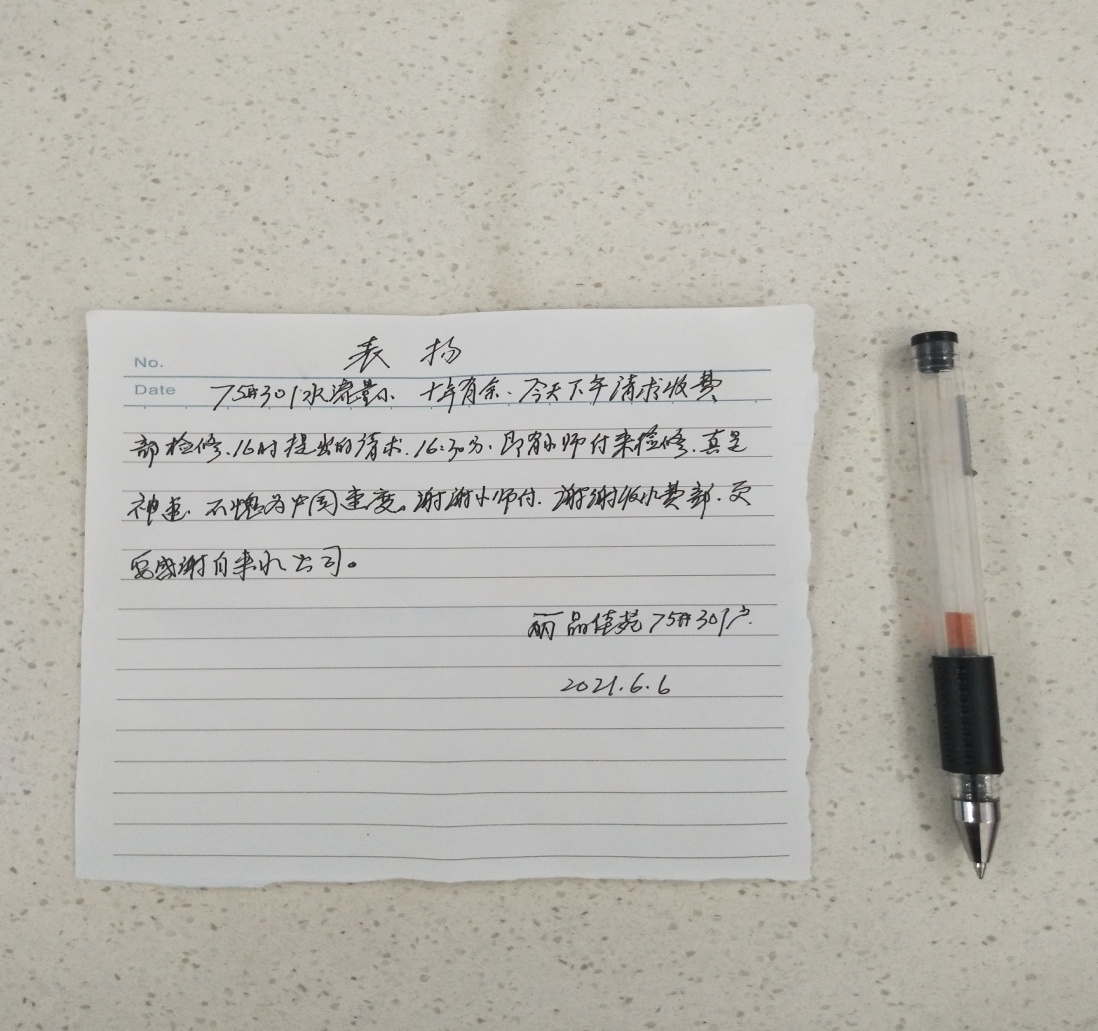 No.
表扬
Date
75#301水流量小、十年有余、今天下午请求收费
部检修、16时提出的请求、16:30分、即有小师付来检修、真是
神速、不愧为中国速度。谢谢小师付、谢谢收水费部、更
要感谢自来水公司。
丽品佳苑75#301户
2021.6.6